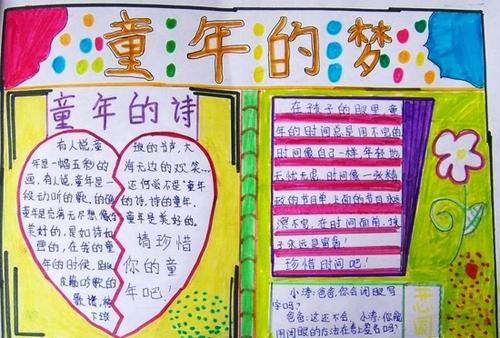 童年的梦
童年的诗
有人说,童
年是一幅五彩的
画,有人说,童年是一
段动听的歌,的确
童年是充满无尽想像的
美好的,是如诗如
画的,在我的童
年的时候,
歌
班的书声,大
海无边的欢笑…
还何尝不是"童年
的诗,诗的童年,
童年是美好的。
请珍惜
你的童
年吧!
在孩子的眼里童
年的时间总是用不完的
时间像自己一样年轻
无忧无虑,时间像一张精
致的节目单上面的节目永
演不完,在时间面前,孩
子永远是富翁!
珍惜时间吧!
小涛:爸爸,你会闭眼写
字吗?
爸:这还不会,小涛:你能
用闭眼的方法在考上签名吗?